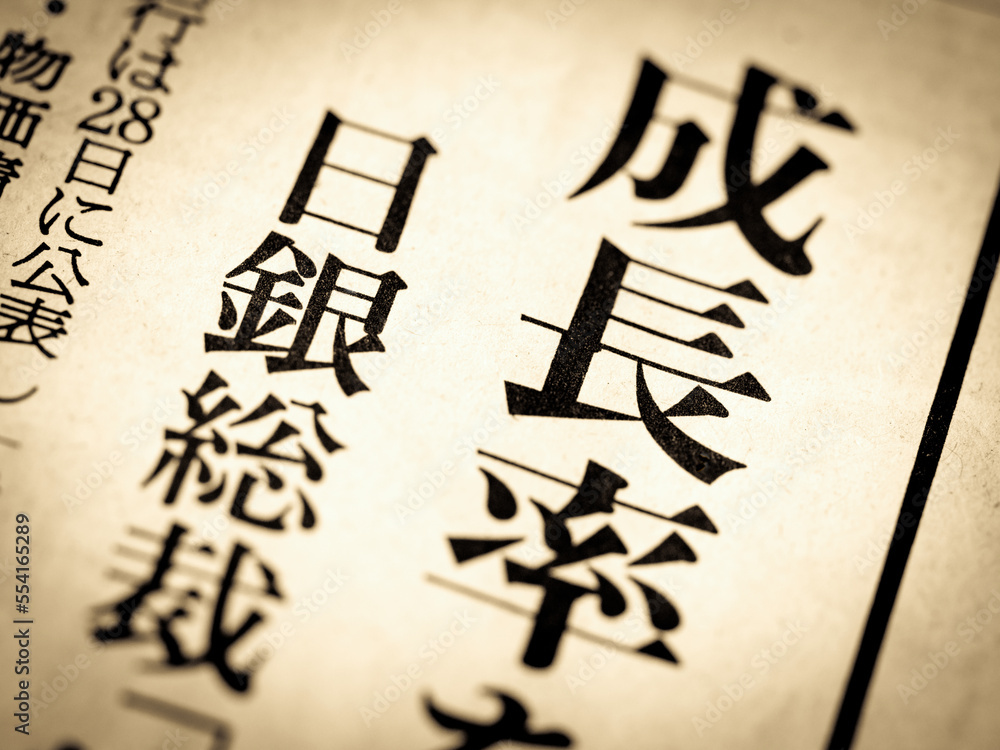 成長率
日銀総裁「
行は28日に公表（
・物価
Adobe Stock | #554165289